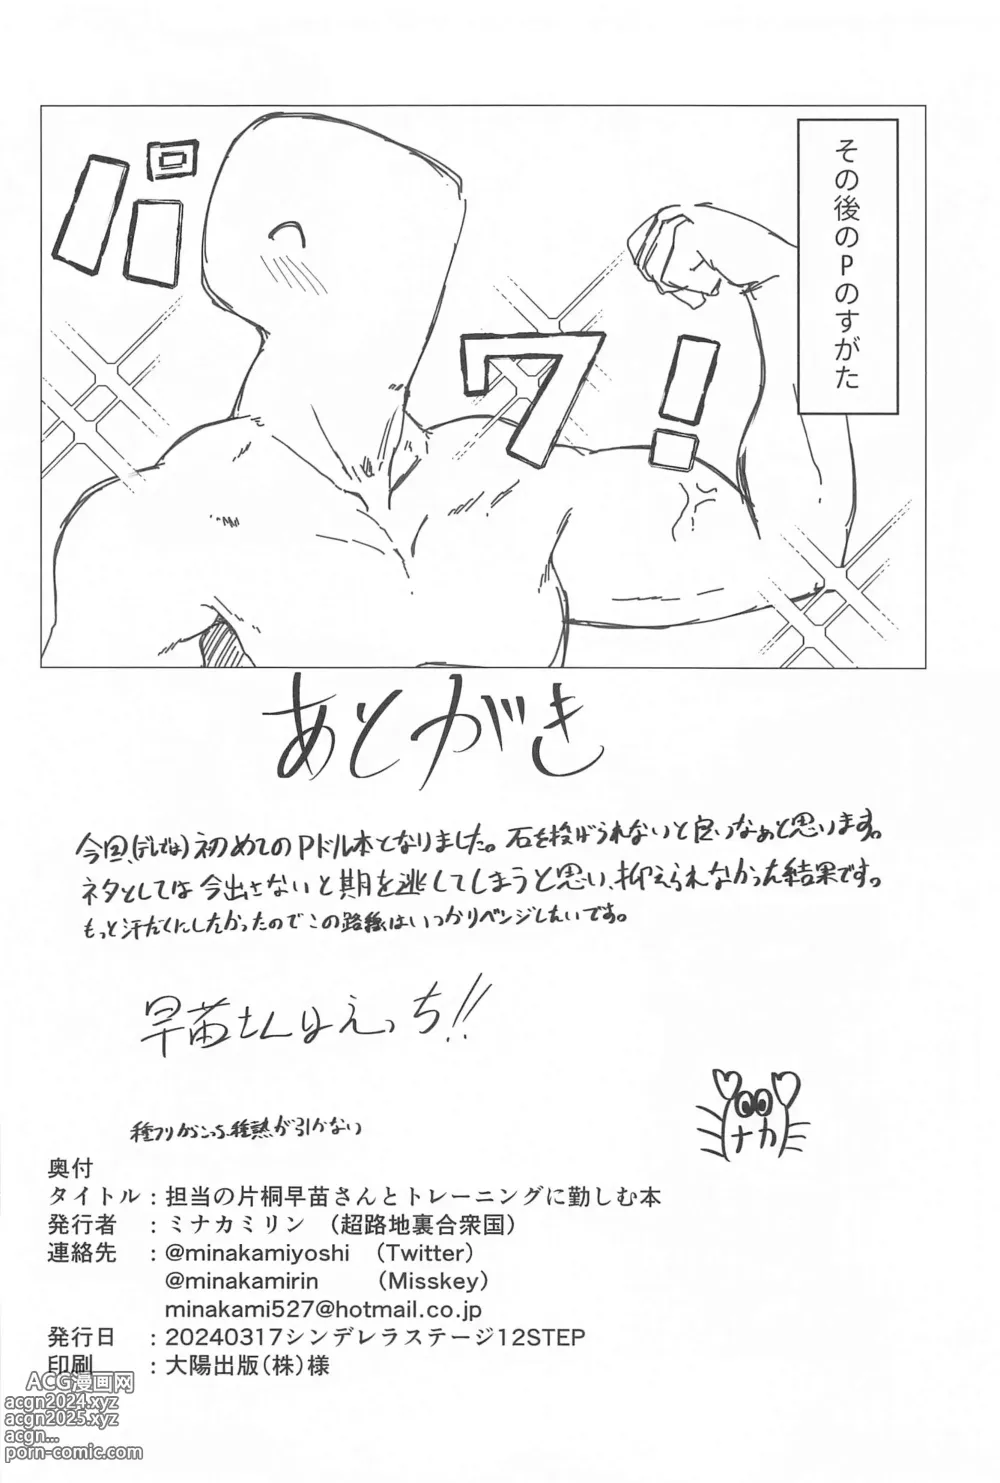 その後のPのすがた
パワ!
あとがき
今回、(デレでは)初めてのPドル本となりました。石を投げられないと良いなぁと思います。
ネタとしては今出さないと期を逃してしまうと思い、抑えられなかった結果です。
もっと汗だくにしたかったのでこの路線はいつかリベンジしたいです。
早苗さんはえっち!!
ナカ
熱が引かない
奥付
タイトル:担当の片桐早苗さんとトレーニングに勤しむ本
発行者 :ミナカミリン (超路地裏合衆国)
連絡先 :@minakamiyoshi (Twitter)
@minakamirin (Misskey)
minakami527@hotmail.co.jp
発行日 :20240317シンデレラステージ12STEP
印刷 :大陽出版(株)様
ACG漫画网
acgn2024.xyz
acgn2025.xyz
acgn...
porn-comic.com